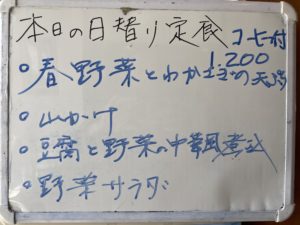 本日の日替り定食 コーヒー付
1.200
春野菜とわかさぎの天ぷら
山かけ
豆腐と野菜の中華風煮込
野菜サラダ